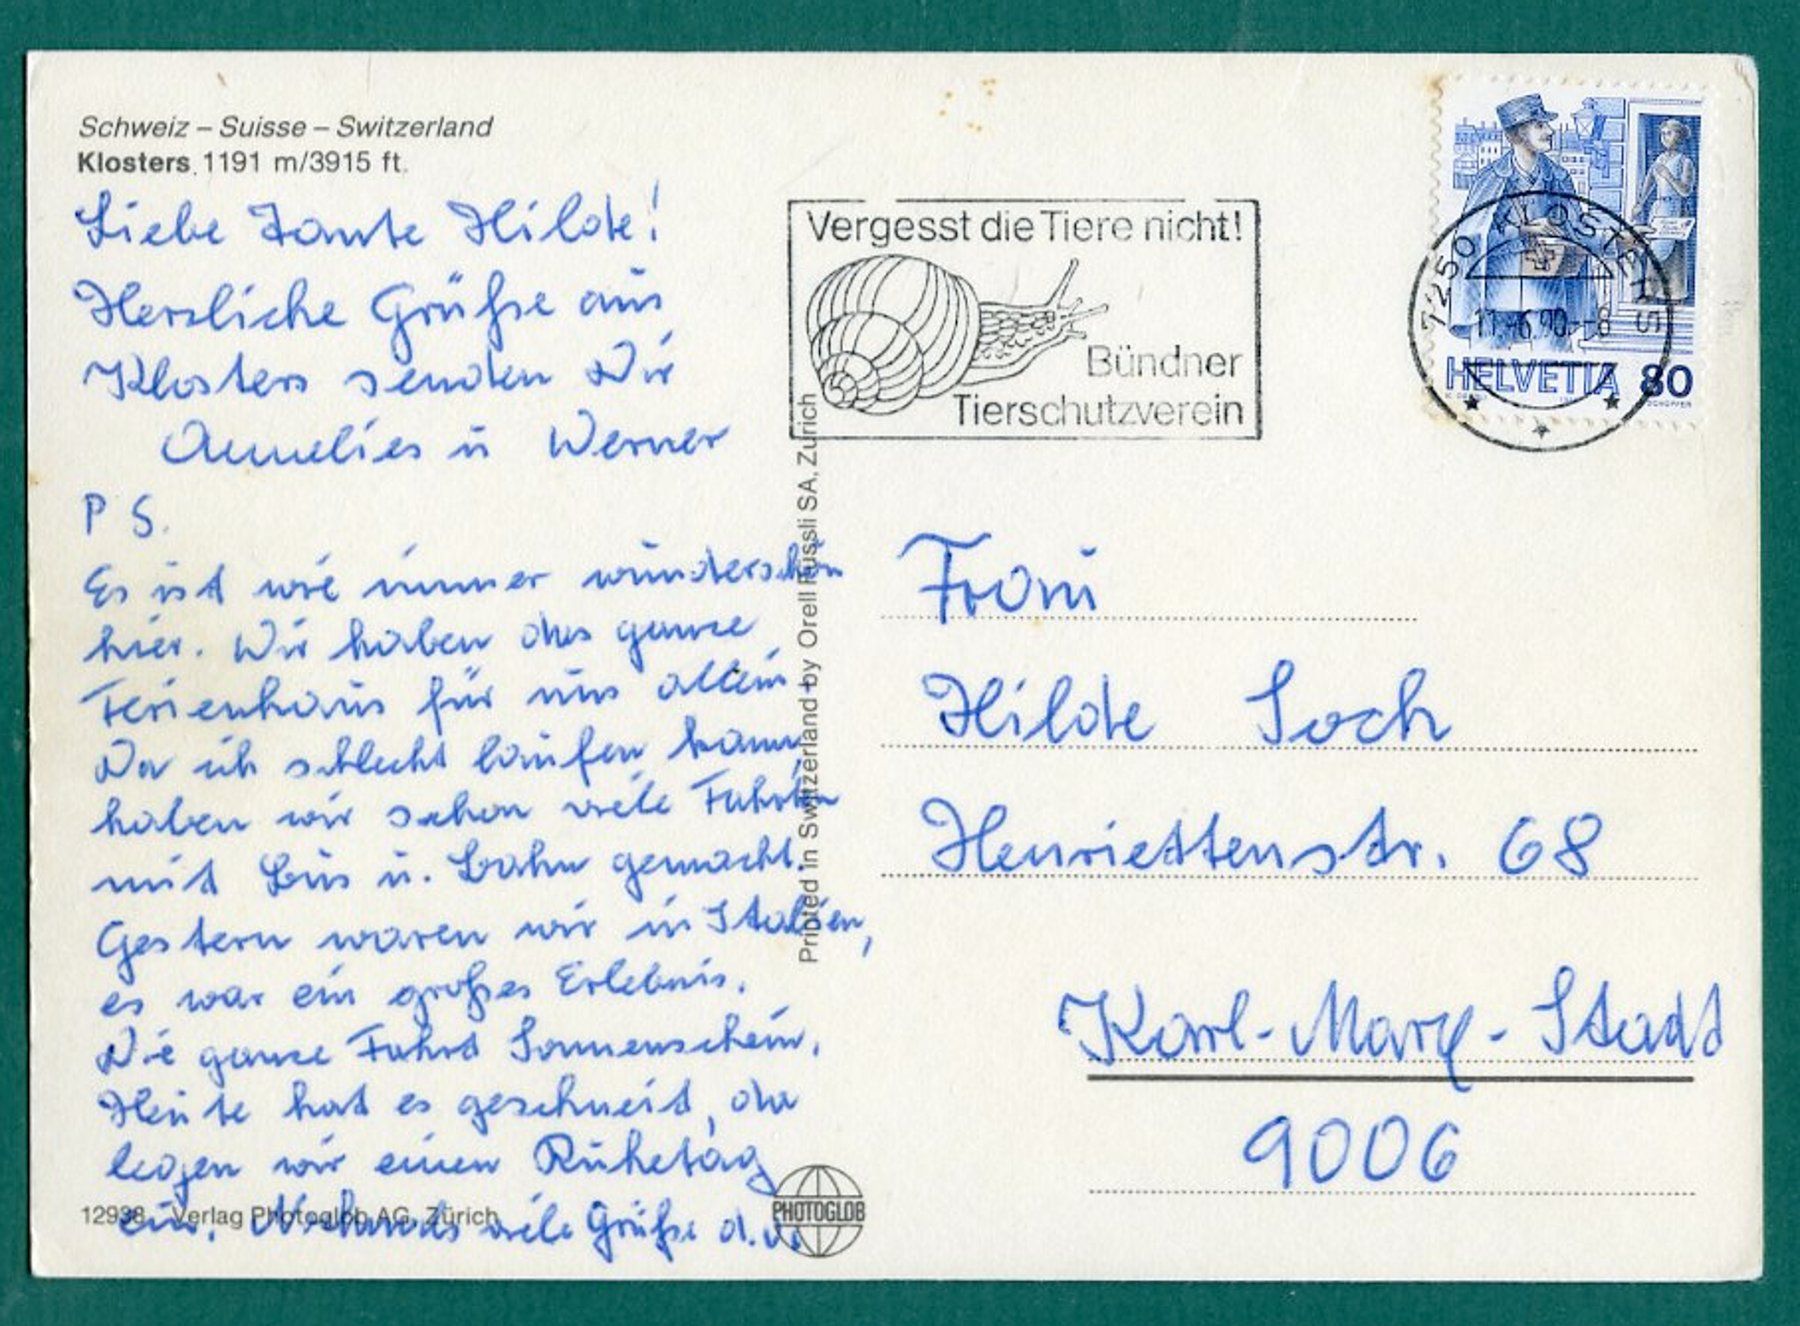 Schweiz – Suisse – Switzerland
Klosters, 1191 m/3915 ft.
Liebe Tante Hilde!
Herzliche Grüße aus
Klosters senden Dir
Annelies u Werner
P S.
Es ist wie immer wunderschön
hier. Wir haben das ganze
Ferienhaus für uns allein
Da ich schlecht laufen kann,
haben wir schon viele Fahrten
mit Bus u. Bahn gemacht.
Gestern waren wir in Italien,
es war ein großes Erlebnis.
Die ganze Fahrt Sonnenschein.
Heute hat es geschneit, da
legen wir einen Ruhetag
ein. Nochmals viele Grüße d.u.
12938 Verlag Photoglob AG, Zürich
PHOTOGLOB
Printed in Switzerland by Orell Füssli SA, Zürich
Vergesst die Tiere nicht!
Bündner
Tierschutzverein
7250 KLOSTERS
11.-6.90.-8
HELVETIA 80
Frau
Hilde Soch
Henriettenstr. 68
Karl-Marx-Stadt
9006